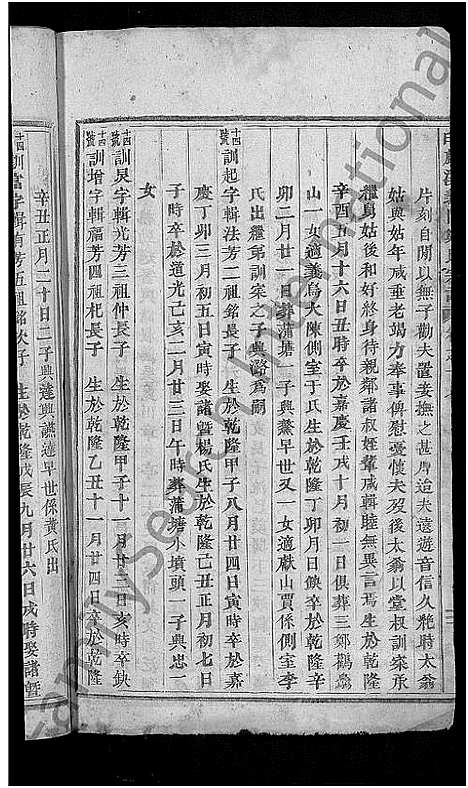 片刻自閒以無子勸夫置妾撫之甚厚迨夫遠遊音信久絶時太翁
姑與姑年咸垂老竭力奉事俾慰憂懷夫歿後太翁以堂叔訓寀承
繼舅姑後和好終身待親鄰諸叔姪輩咸輯睦無異言焉生於乾隆
辛酉五月十六日丑時卒於嘉慶壬戌十月初一日俱葬三鄉鸛
山一女適義烏大陳側室于氏生於乾隆丁卯月日缺卒於乾隆辛
卯二月廿一日葬蒲塘一子興 早世又一女適獻山賈係側室李
氏出繼弟訓寀之子興潞爲嗣
十四號訓起字輯法芳二祖銘長子 生於乾隆甲子八月廿四日寅時卒於嘉
慶丁卯三月初五日寅時娶諸曁楊氏生於乾隆己丑正月初七日
子時卒於道光己亥二月廿三日午時葬蒲塘外墳頭一子興忠一
女
十四號訓炅字輯光芳三祖仲長子 生於乾隆甲子十一月廿三日亥時卒缺
十四號訓增字輯福芳四祖杞長子 生於乾隆乙丑十一月廿四日卒於乾隆
辛丑正月二十日二子興達興 達早世係黃氏出
十四訓 字輯 芳五祖銘次子 生於乾隆戊辰九月廿六日戌時娶諸曁
FamilySearch International